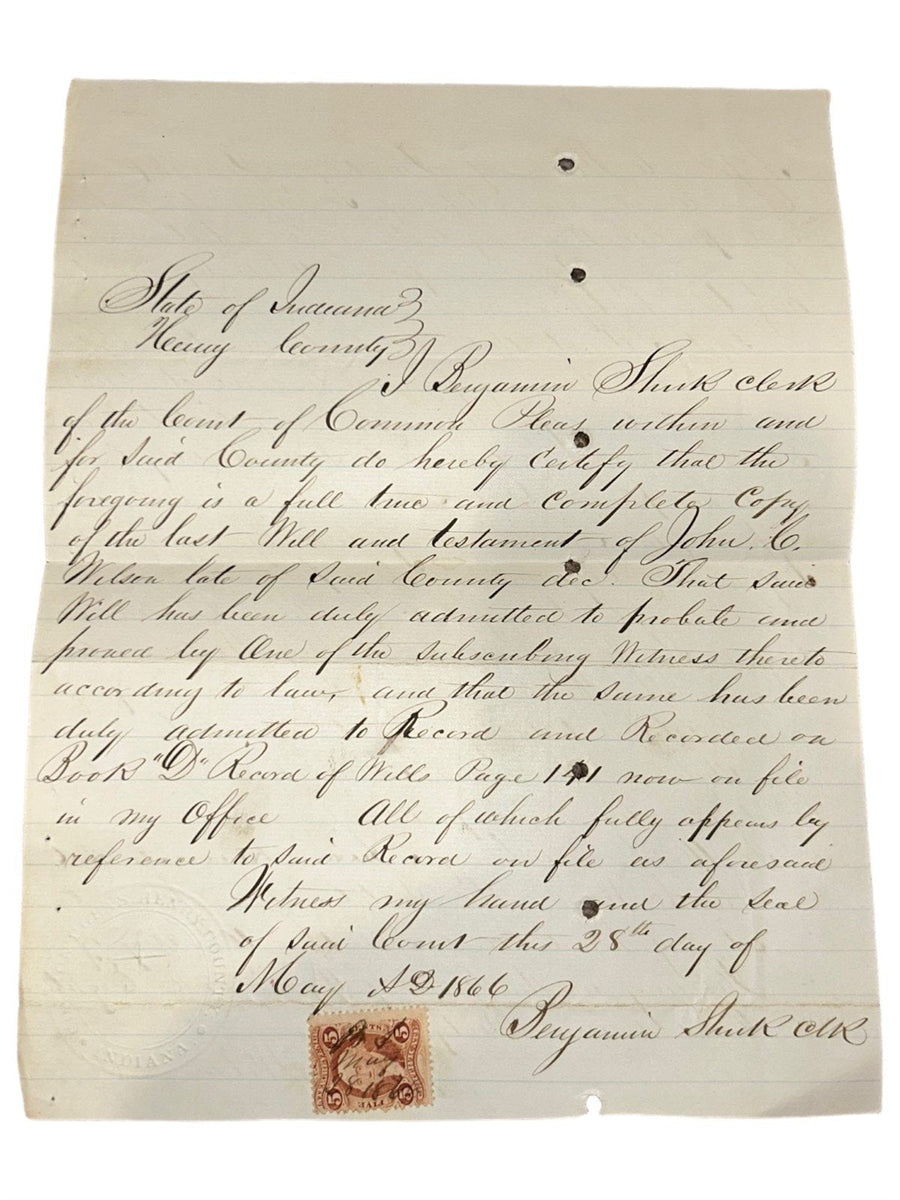 State of Indiana }
Henry County }
I Benjamin Shirk clerk
of the Court of Common Pleas within and
for said County do hereby certify that the
foregoing is a full true and complete Copy
of the last Will and testament of John. C.
Wilson late of said County dec. That said
Will has been duly admitted to probate and
proved by One of the subscribing Witness thereto
according to law, and that the same has been
duly admitted to Record and Recorded on
Book "D" Record of Wills Page 141 now on file
in my Office All of which fully appears by
reference to said Record on file as aforesaid
Witness my hand and the seal
of said Court this 28th day of
May AD 1866
Benjamin Shirk Clk
HENRY COUNTY
INDIANA
5 5
May
1866
5 5